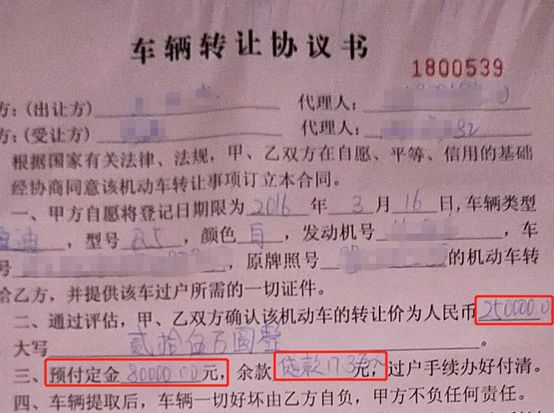 车辆转让协议书
1800539
方:(出让方) 代理人:
方:(受让方) 代理人:
根据国家有关法律、法规,甲、乙双方在自愿、平等、信用的基础
经协商同意该机动车转让事项订立本合同。
一、甲方自愿将登记日期限为2016年3月16日,车辆类型
油,型号,颜色白,发动机号,车
号,原牌照号的机动车转
给乙方,并提供该车过户所需的一切证件。
二、通过评估,甲、乙双方确认该机动车的转让价为人民币250000.0
大写贰拾伍万圆整。
三、预付定金80000.00元,余款贷款17.3万元,过户手续办好付清。
四、车辆提取后,车辆一切好坏由乙方自负,甲方不负任何责任。